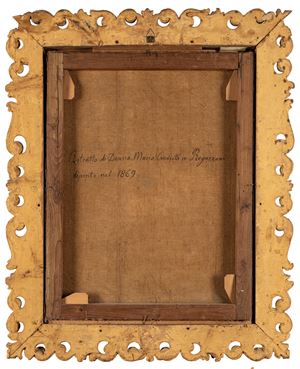 Ritratto di Donna Maria in
dipinto nel 1869